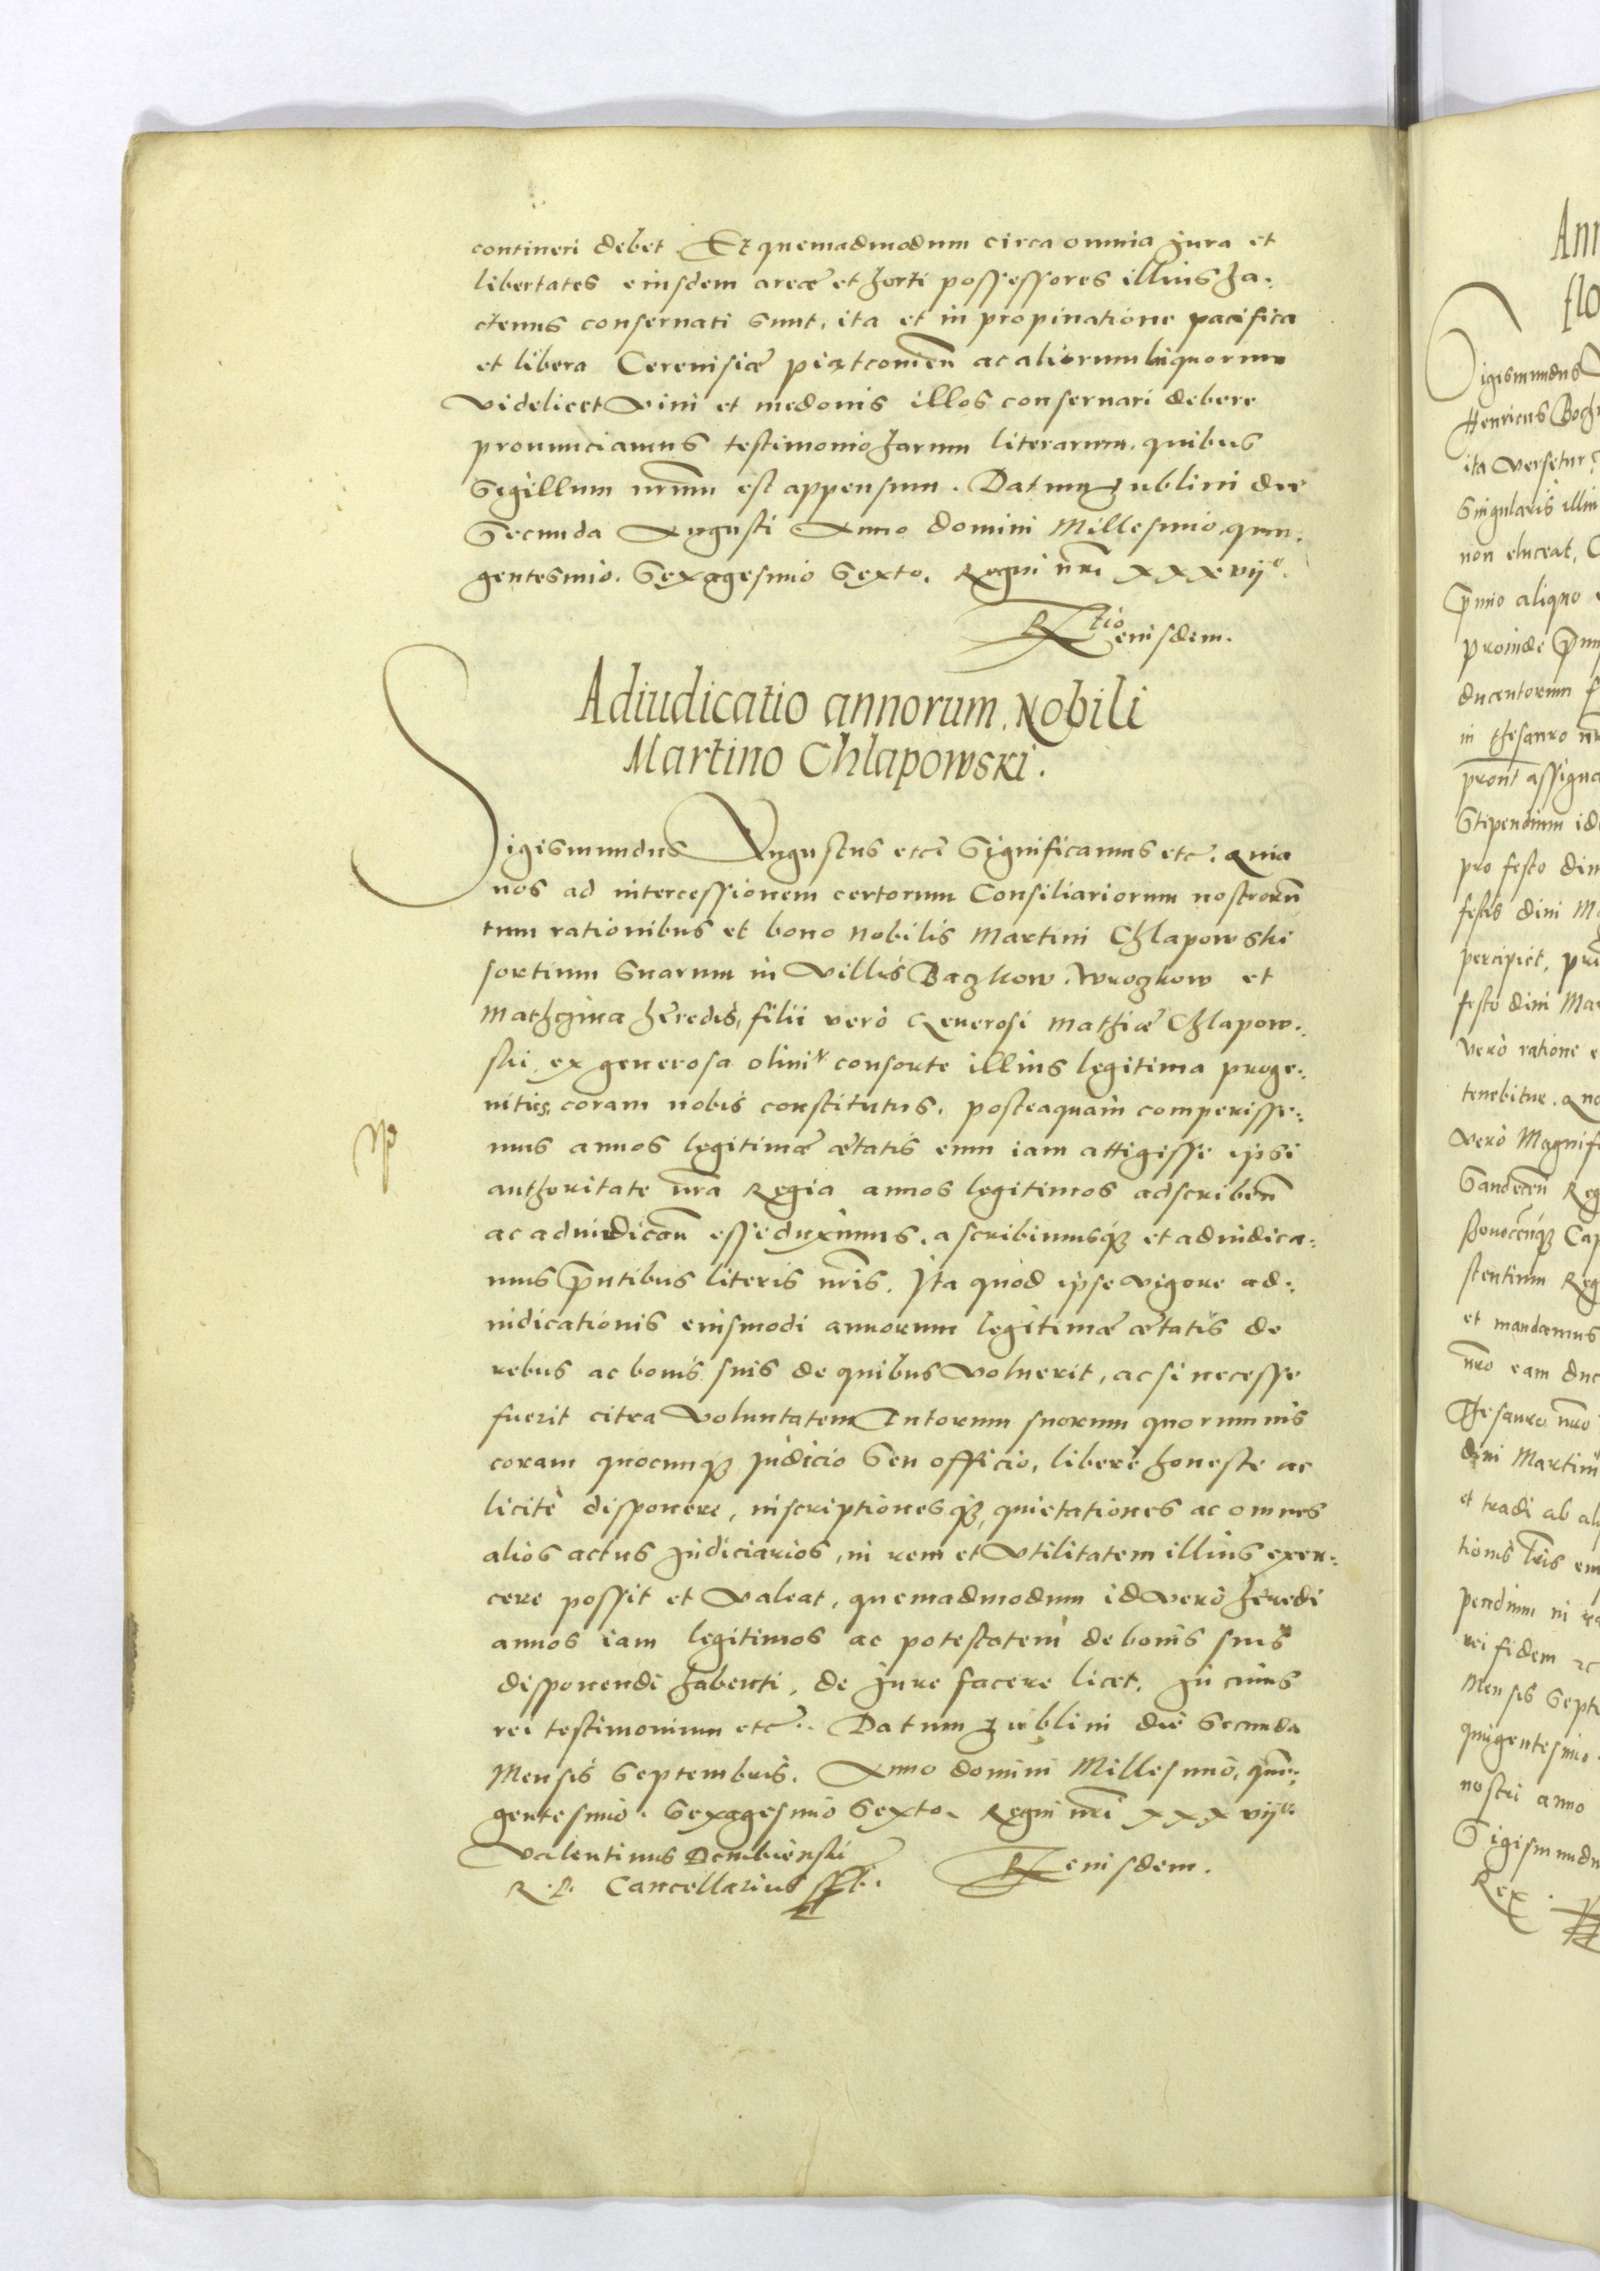 contineri debet. Et quemadmodum circa omnia jura et
libertates eiusdem areæ et horti possessores illius ha-
ctenus conservati sunt, ita et in propinatione pacifica
et libera Cerevisiæ ac aliorum liquorum
videlicet vini et medonis illos conservari debere
pronunciamus testimonio harum literarum, quibus
Sigillum nrum est appensum. Datum Lublini die
Secunda Augusti Anno domini Millesimo, quin-
gentesimo. Sexagesimo Sexto. Regni nri xxxvijo.
Rtio eiusdem.
Adiudicatio annorum Nobili
Martino Chlapowski.
Sigismundus Augustus etc. Significamus etc. Quia
nos ad intercessionem certorum Consiliariorum nostrorum
tum rationibus et bono Nobilis Martini Chlapowski
sortium suarum in villis Baczkow. Wroczkow et
hæredis, filii vero Generosi Mathiæ Chlapow-
ski, ex generosa consorte illius legitima proge-
nitus, coram nobis constitutus, posteaquam comperisse-
mus annos legitimæ ætatis eum iam attigisse ipsi
authoritate nra Regia annos legitimos adscriben
ac adiudican esse duximus, ascribimusque et adiudica-
mus pntibus literis nris. Ita quod ipse vigore ad-
iudicationis eiusmodi annorum legitimæ ætatis de
rebus ac bonis suis de quibus voluerit, ac si necesse
fuerit citra voluntatem Tutorum suorum quorumvis
coram quocunque Judicio Seu officio, liberè honeste ac
licitè disponere, inscriptionesque, quietationes ac omnes
alios actus judiciarios, in rem et utilitatem illius exer-
cere possit et valeat, quemadmodum id vero hæredi
annos iam legitimos ac potestatem de bonis suis
disponendi habenti, de jure facere licet. In cuius
rei testimonium etc. Datum Lublini die Secunda
Mensis Septembris. Anno domini Millesimo, quin-
gentesimo. Sexagesimo Sexto. Regni nri xxxvijo.
Valentinus Dembienski
R. P. Cancellarius sst.
R eiusdem.
Sigismundus
Henricus
ita versetur
Singularis
non eluceat,
aliquo
proinde
ducentorum
in thesauro
assigna
Stipendium
pro festo
festis divi
percipiet,
festo divi Mar
vero ratione
tenebitur.
vero Magnifi
et mandamus
nro eam duc
Thesauro nro
divi Martini
et tradi ab
tionis
pendium in
rei fidem
Mensis Septe
quingentesimo
nostri anno
Sigismundu
Rex.